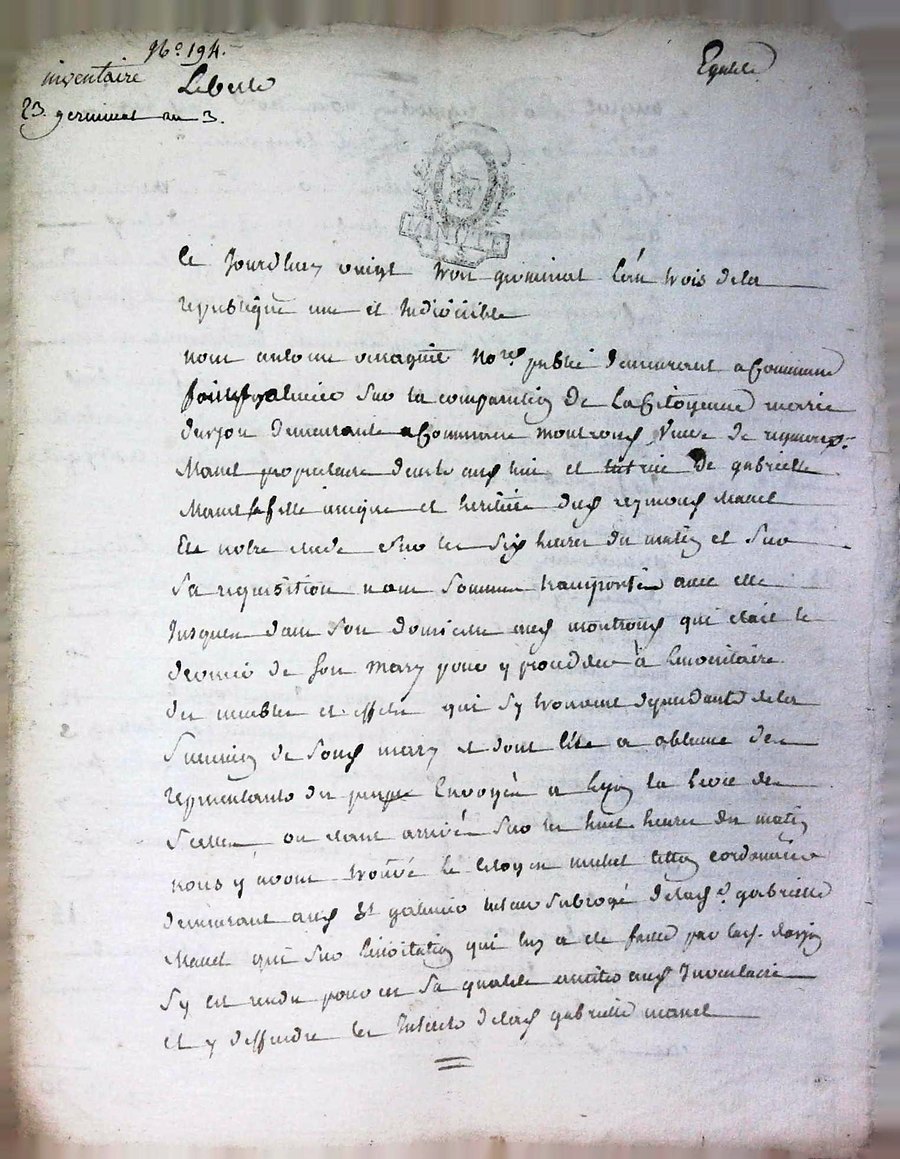 No. 194.
inventaire
23. germinal an 3.
Liberté
Egalité
Ce Jourdhuy vingt trois germinal L'an trois dela
republique une et Indivisible
nous antoine no.re public demeurant a Commune
fontfortgalmier Sur la comparution de La Citoyenne marie
demeurante a Commune montrond Veuve de
Manel propriétaire dud. lieu et tutrice de gabrielle
Manel fille unique et heritiere dud. reymond Manel
En notre etude Sur les Six heures du matin et Sur
Sa requisition nous Sommes transportés avec elle
Jusques dans Son domicile aud. montrond qui etait le
dernier de Son mary pour y proceder à Linventaire
des meubles et effets qui S'y trouvent dependants dela
Succession de Sond. mary et dont elle a obtenue des
representants du peuple Envoyés a Lyon la levée des
Scellés ou etant arrivés Sur les huit heures du matin
nous y avons trouvé le Citoyen michel cordonnier
demeurant aud. St galmier tuteur Subrogé delad.e gabrielle
Manel qui Sur Linvitation qui luy a été faitte par lad.
S'y est rendu pour en Sa qualité assister aud. Inventaire
et y deffendre les Interets delad. gabrielle manel